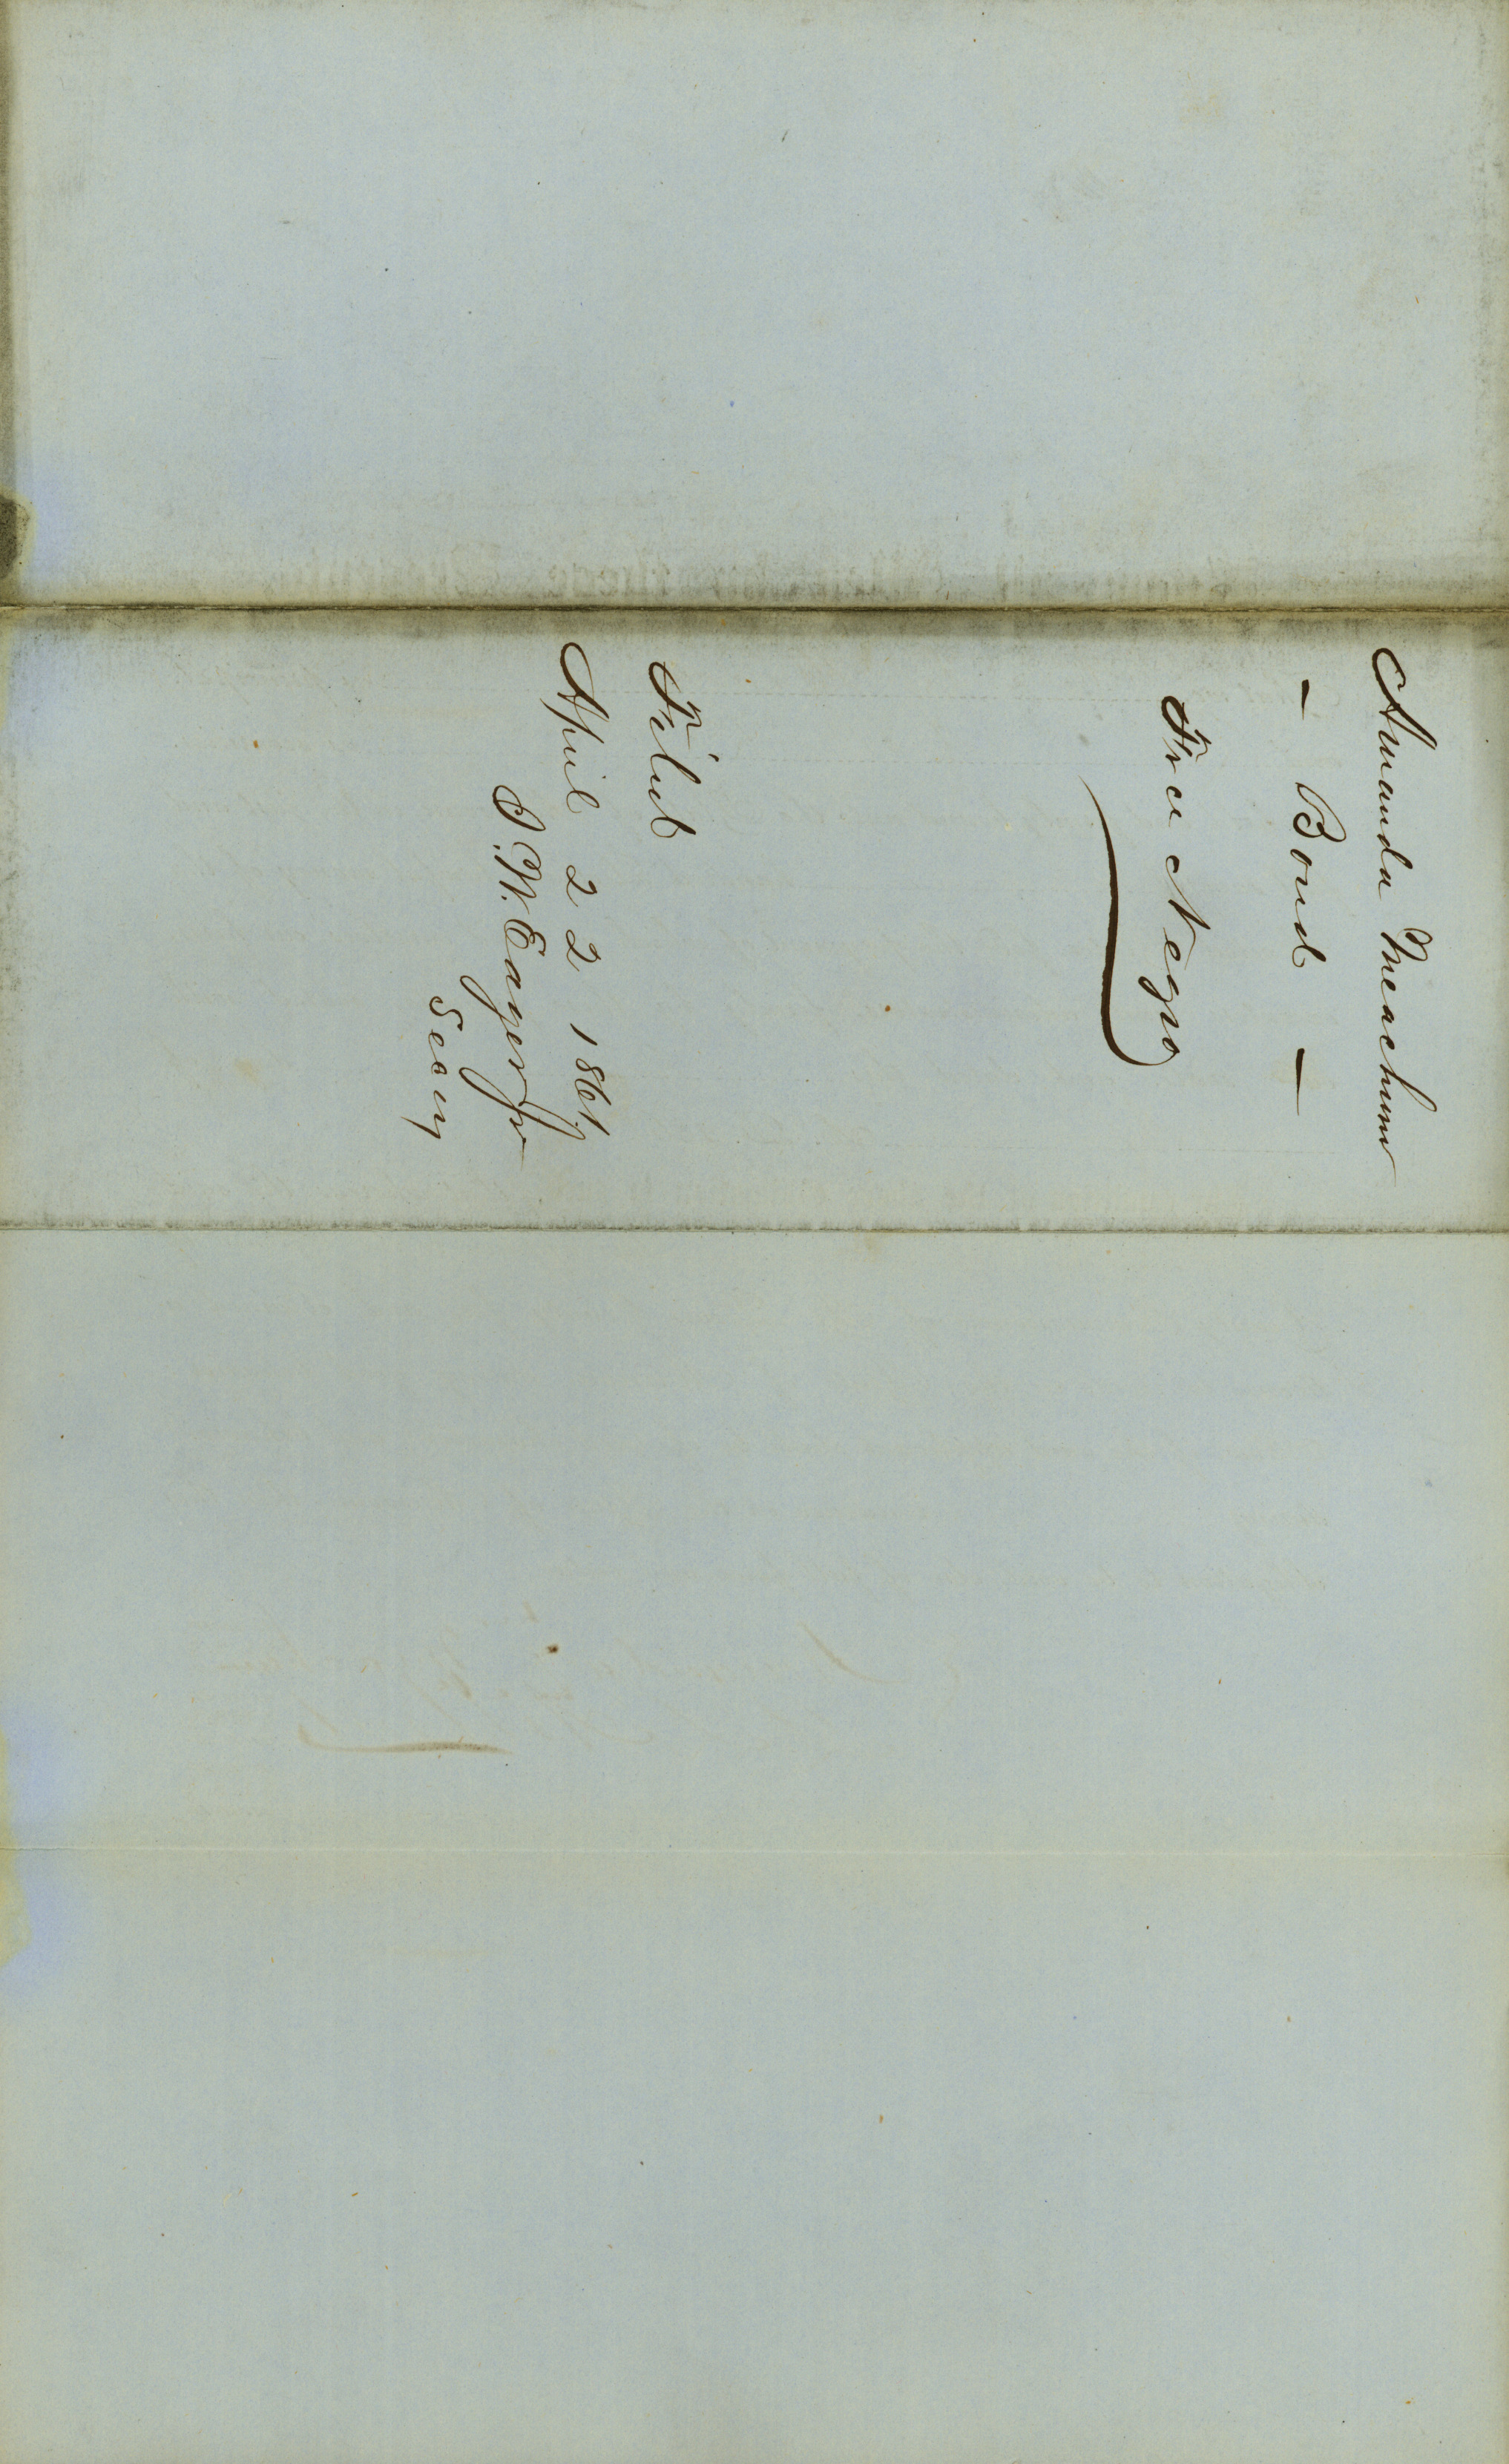 Amanda Meachum
- Bond -
Free Negro
Filed
April 22 1861
P. W. Eager jr
Secry